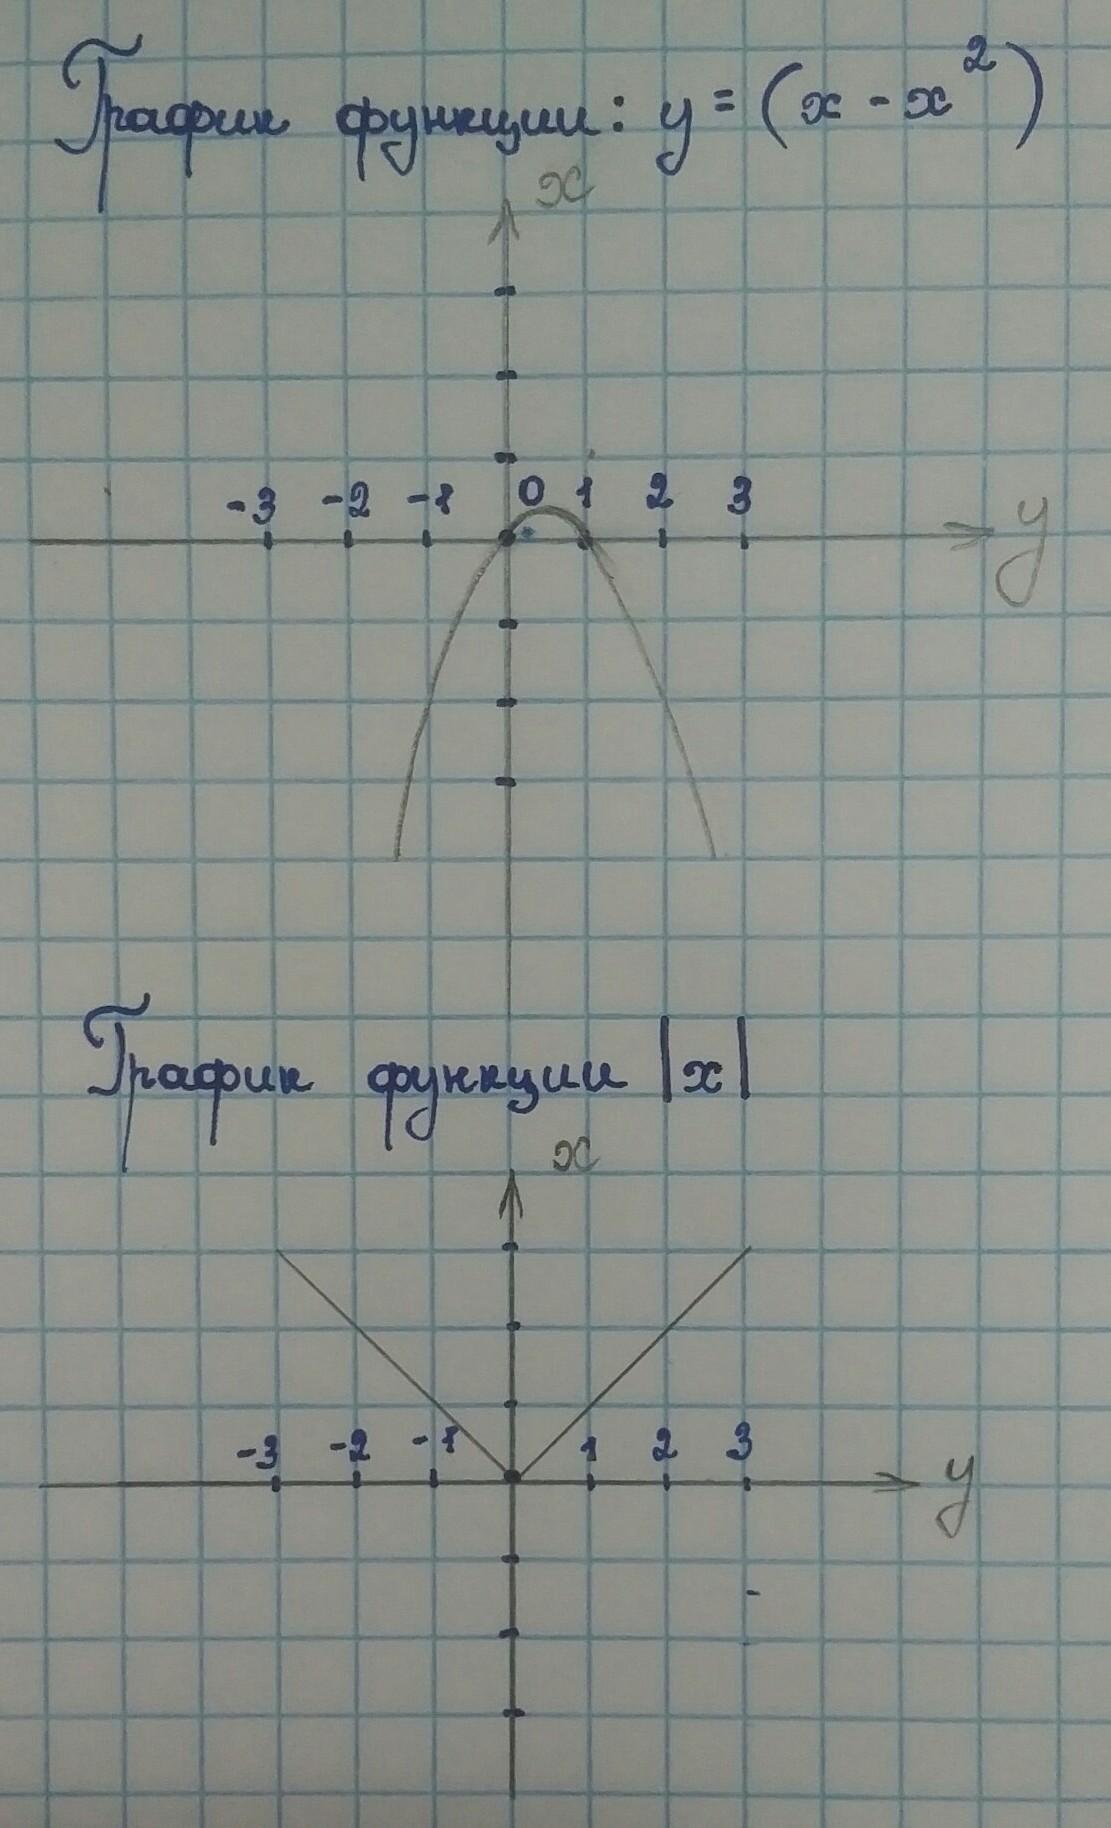 График функции: y = (x - x²)
x
-3 -2 -1 0 1 2 3
y
График функции |x|
x
-3 -2 -1 1 2 3
y